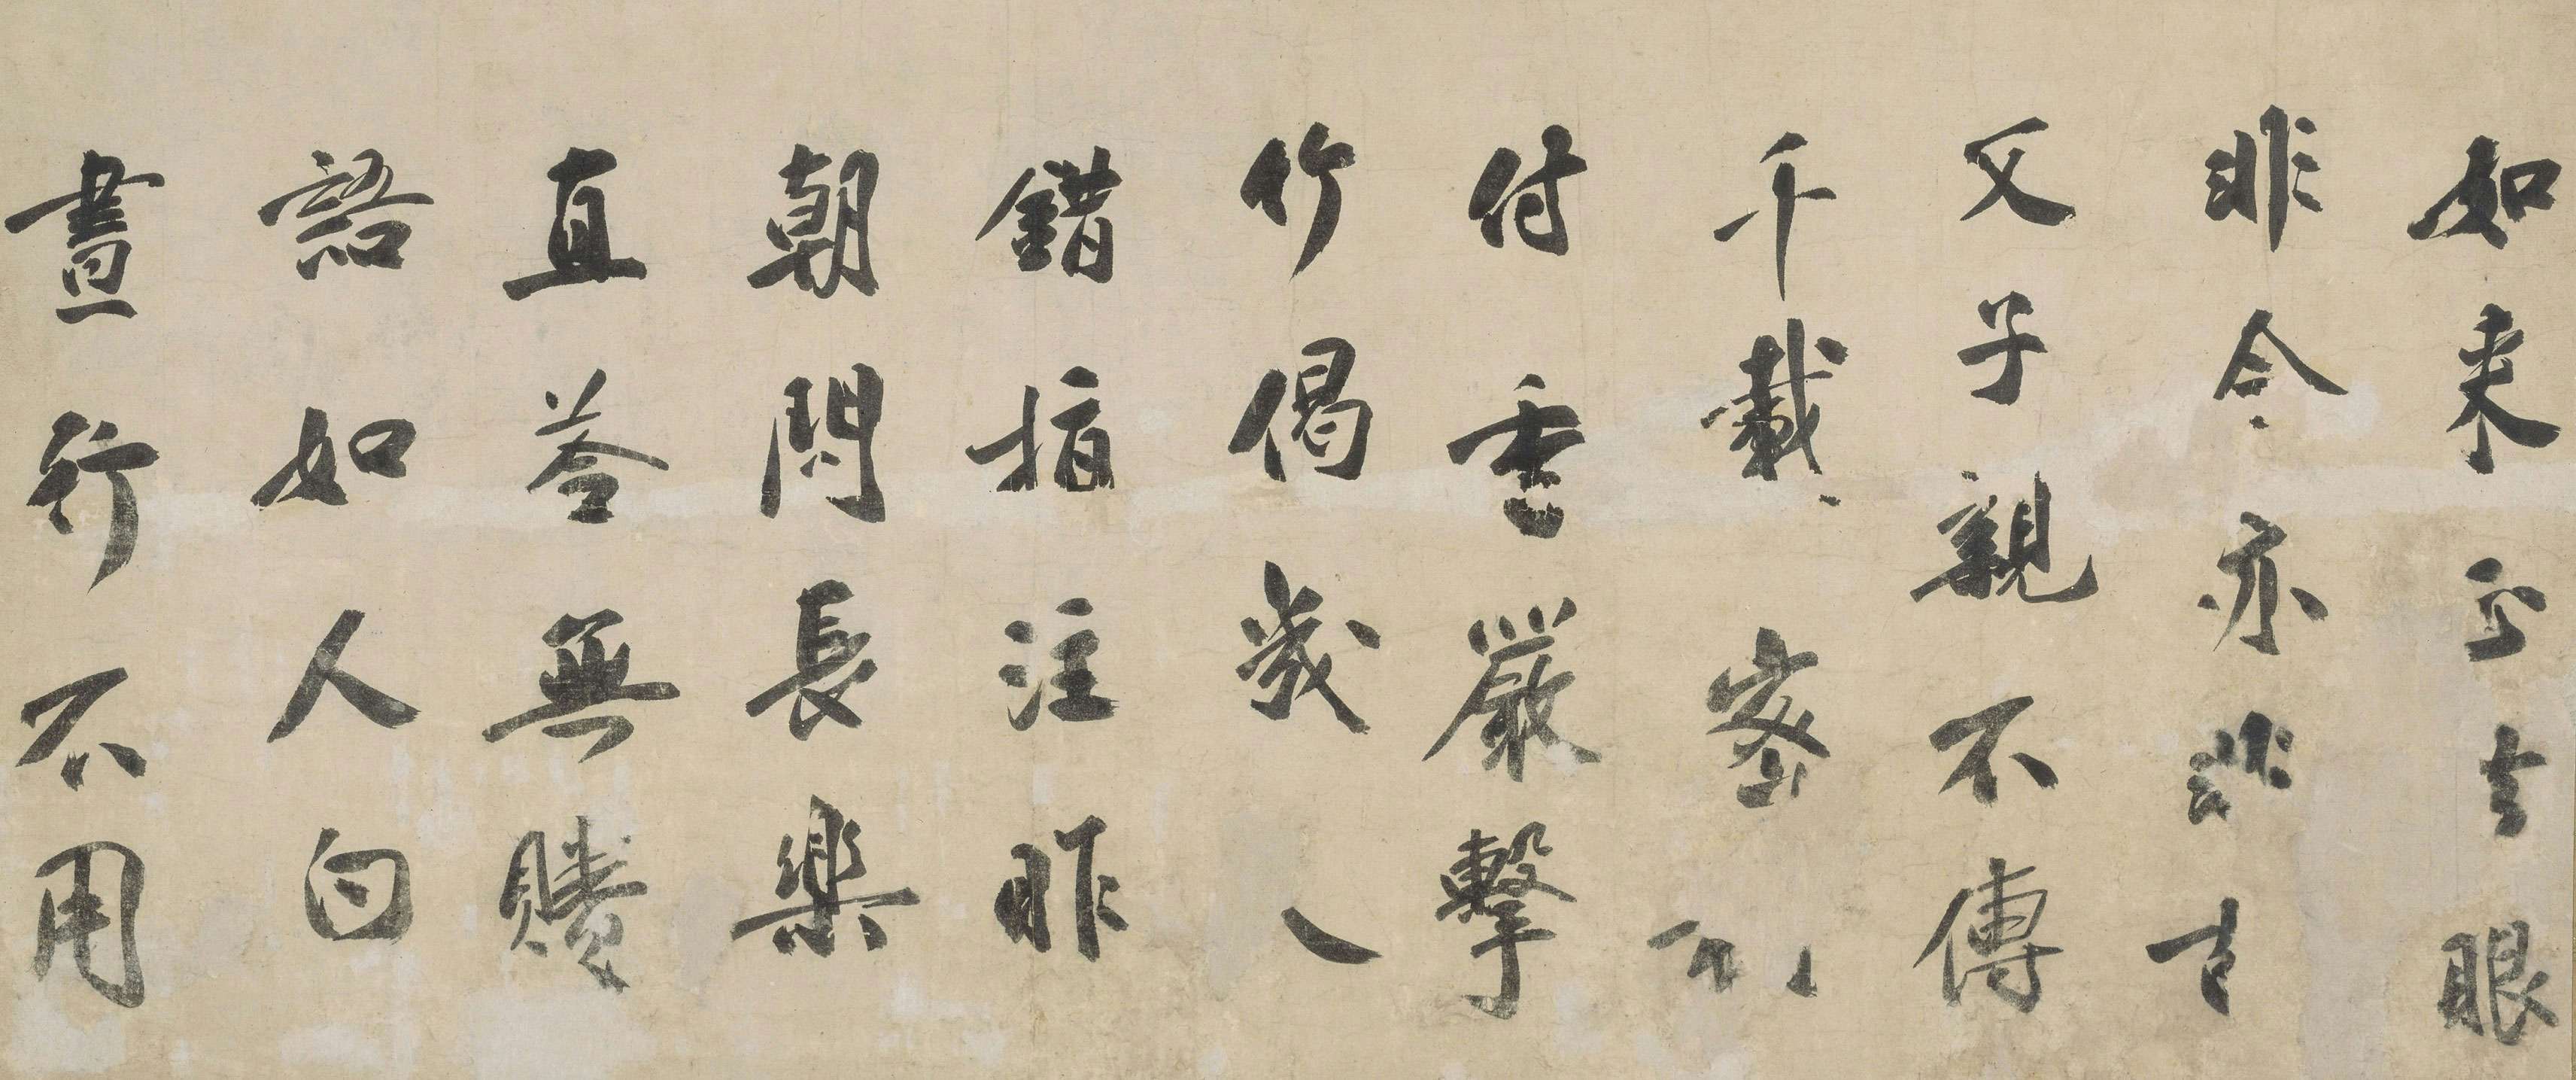 如来正法眼
非今亦非古
父子親不傳
千載密
付香嚴擊
竹偈幾人
錯指注昨
朝問長樂
直荅無賸
語如人白
晝行不用